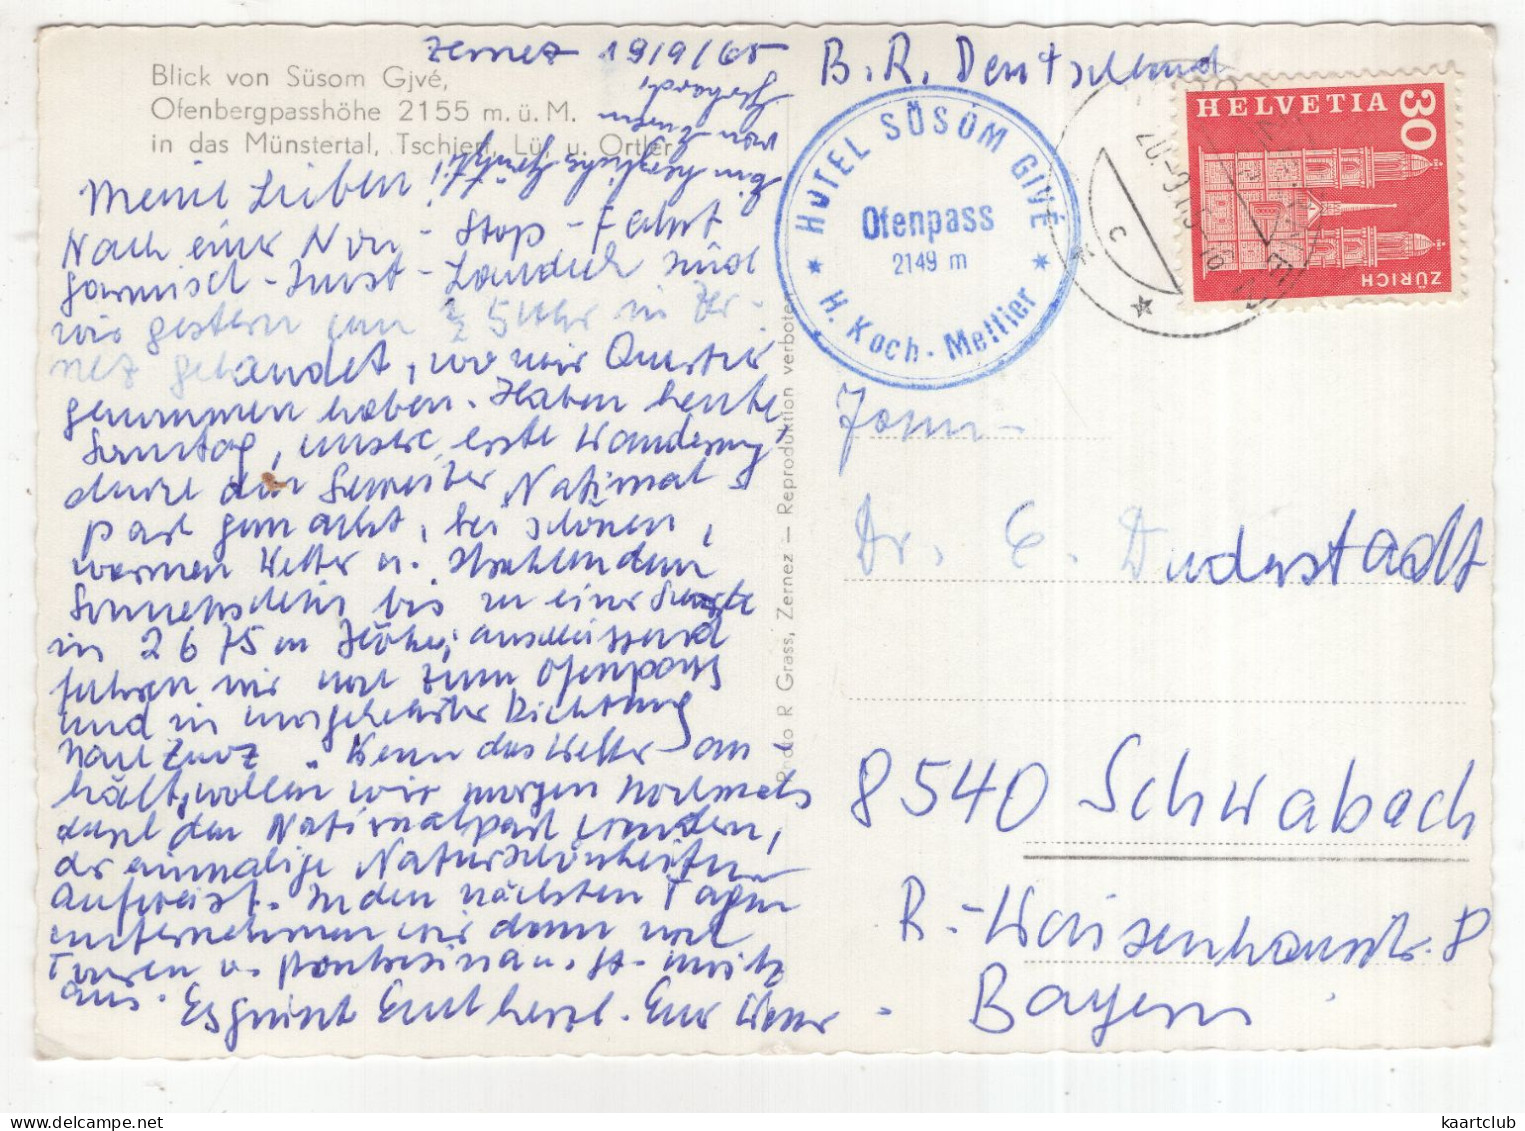 Zernez 19/9/65
Blick von Süsom Gjvé,
Ofenbergpasshöhe 2155 m. ü. M.
in das Münstertal, Tschierf, Lü, u. Ortler
Meine Lieben!
Nach einer Non-Stop-Fahrt
Garmisch-Imst-Landeck sind
wir gestern um ½ 5 Uhr in Zer-
nez gelandet, wo wir Quartier
genommen haben. Haben heute,
Sonntag, unsere erste Wanderung
durch den National
park gemacht, bei schönen,
warmen Wetter u. strahlendem
Sonnenschein bis zu einer
in 2675 m Höhe; anschliessend
fuhren wir noch zum Ofenpass
und in umgekehrter Richtung
nach Zuoz. Wenn das Wetter an
hält, wollen wir morgen nochmals
durch den Nationalpark wandern,
der einmalige Naturschönheiten
aufweist. In den nächsten Tagen
unternehmen wir dann noch
Touren n. Pontresina u. St. Moritz
aus. Es grüsst Euch herzl. Euer
Ein herzliches
von
Photo R Grass, Zernez — Reproduktion verboten
B. R. Deutschland
HOTEL SÜSOM GIVÉ
Ofenpass
2149 m
* H. Koch-Mettier *
HELVETIA 30
ZÜRICH
Dr. E. Duderstadt
8540 Schwabach
R.-Waisenhausstr. 8
Bayern
kaartclub